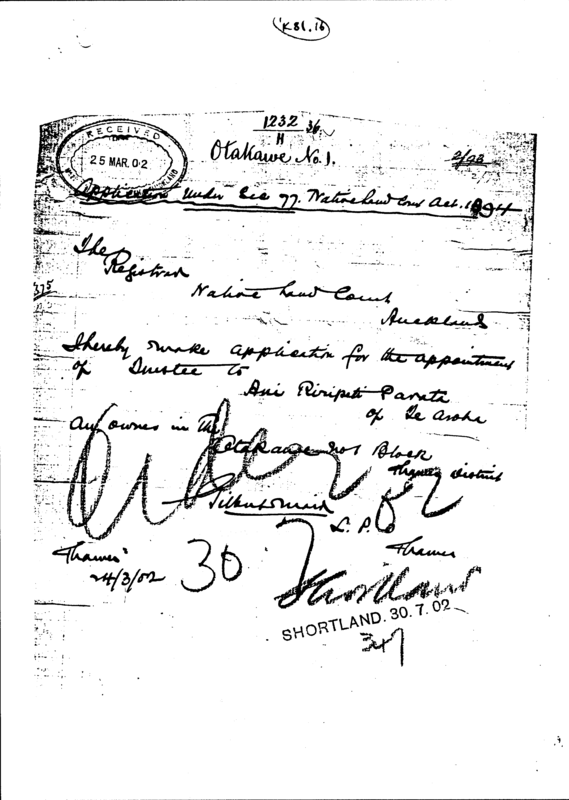 K81.16
1232 36
H
Otakawe No. 1.
2/02
RECEIVED
25 MAR. 02
Application under Sec 77. Native Land Court Act. 1894
The
Registrar
375
Native Land Court
Auckland
I hereby make application for the appointment
of Trustee to
Ani Riripeti Parata
of Te Aroha
an owner in the
Otakawe No 1 Block
Thames District
L. P.
Thames
Thames
24/3/02
Order
30 7 02
Shortland
SHORTLAND. 30. 7. 02
347